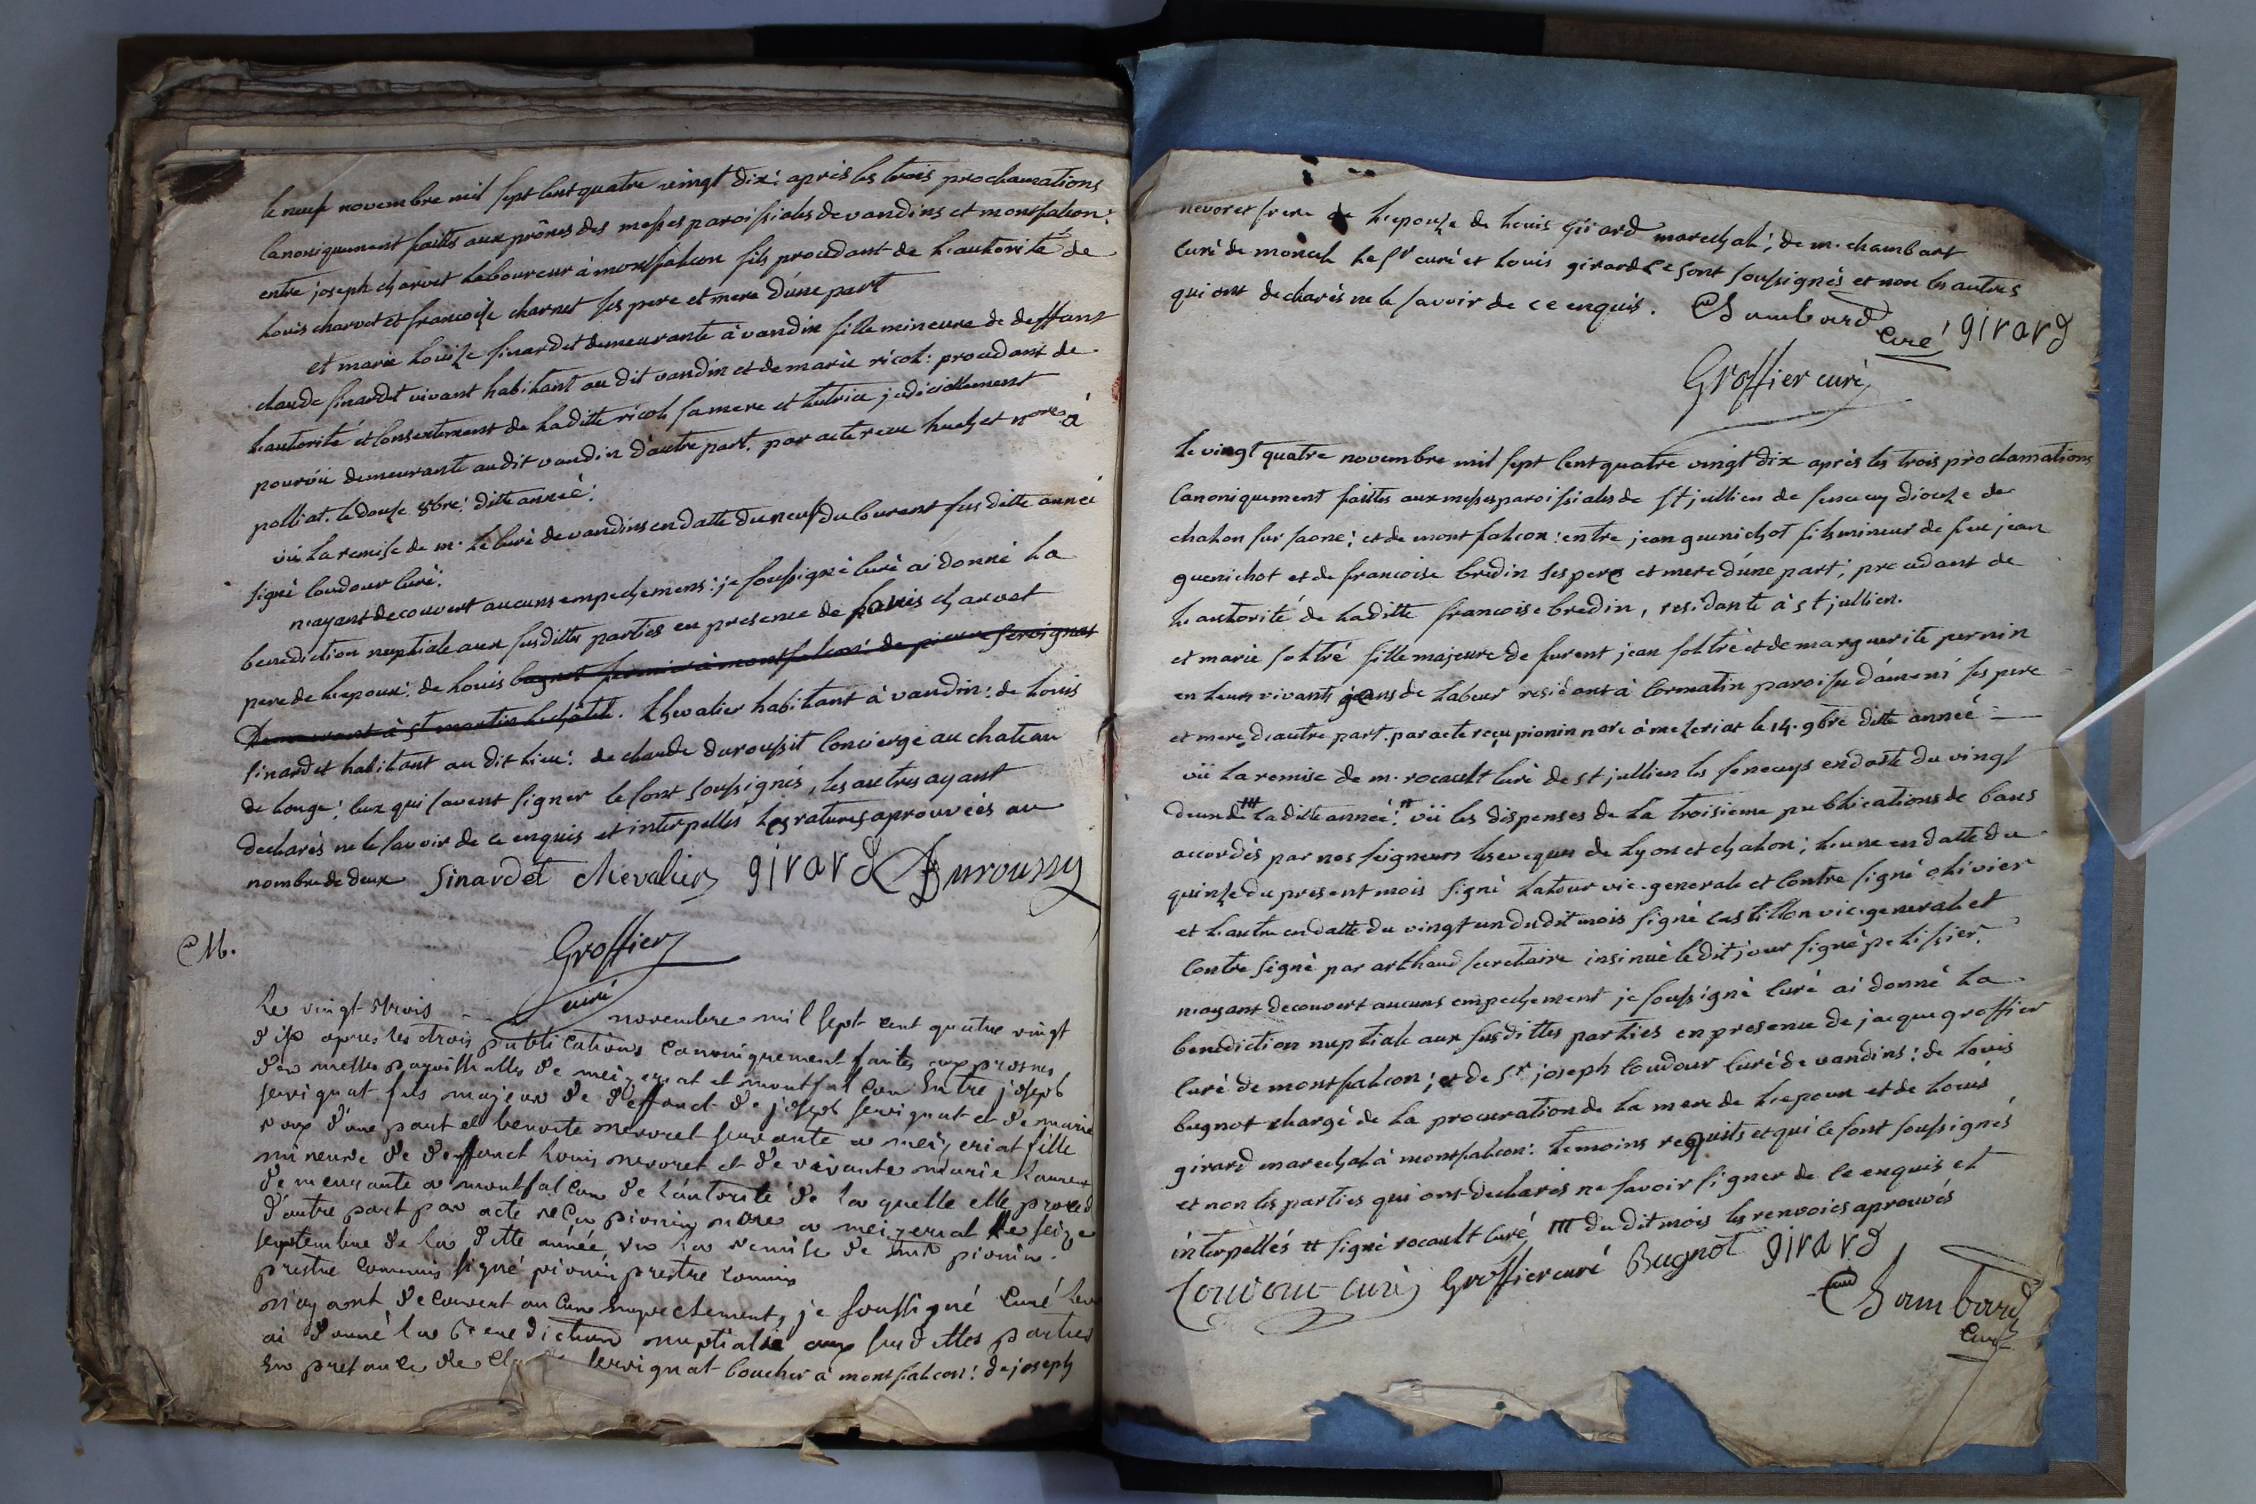 le neuf novembre mil sept cent quatre vingt dix: apres les trois proclamations
canoniquement faittes aux prônes des messes paroissiales de vandins et montfalcon:
entre joseph charvet laboureur à montfalcon fils procedant de l'autorité de
louis charvet et francoise charnet ses pere et mere d'une part
et marie louise sinardet demeurante à vandin fille mineure de deffunt
claude sinardet vivant habitant au dit vandin et de marie ricol: procedant de
l'autorité et consentement de laditte ricol sa mere et tutrice judiciellement
pourvüe demeurante audit vandin d'autre part. par acte recu huchet nore à
polliat. le douze 8bre: ditte année:
vü la remise de m. le curé de vandins en datte du neuf du courent susditte année
signé coudour curé:
n'ayant decouvert aucuns empechemens: je soussigné curé ai donné la
benediction nuptiale aux susdittes parties en presence de louis charvet
pere de l'epoux: de louis bugnot fermier à montfalcon: de pierre servignat
demeurant à st martin le chatel. chevalier habitant à vandin: de louis
sinardet habitant au dit lieu: de claude duroussit concierge au chateau
de longe: ceux qui savent signer se sont soussignés, les autres ayant
declarés ne le savoir de ce enquis et interpellés les ratures aprouvées au
nombre de deux Sinardet chevalier girard Duroussy
Groffier
curé
M.
Le vingt trois novembre mil sept cent quatre vingt
dix apres les trois publications canoniquement faites aux prosnes
des messes paroissialles de meizeriat et montfalcon Entre joseph
servignat fils majeur de deffunct de joseph servignat et de marie
d'une part et benoite nevoret servante a meizeriat fille
mineure de deffunct Louis nevoret et de vivante marie Laurent
demeurante a montfalcon de l'autorité de la quelle elle proced
d'autre part par acte reçu pionin nore a meizeriat le seize
septembre de la ditte année, vu la remise de pionin
prestre commis signé pionin prestre commis
n'ayant decouvert aucuns empechements, je soussigné curé
ai donné la benediction nuptiale aux susdittes parties
En presance de servignat boucher à montfalcon: de joseph
nevoret frere de l'epouse de louis girard marechal; de m. chambart
curé de moncel le sr curé et louis girard se sont soussignés et non les autres
qui ont declarés ne le savoir de ce enquis. Chambard
curé girard
Groffier curé
le vingt quatre novembre mil sept cent quatre vingt dix après les trois proclamations
canoniquement faittes aux messes paroissiales de st jullien de senecey diocese de
chalon sur saone; et de montfalcon: entre jean guenichot fils mineur de feu jean
guenichot et de francoise bredin ses pere et mere d'une part; procedant de
l'autorité de laditte francoise bredin, residante à st jullien.
et marie soltré fille majeure de furent jean soltré et de marguerite pernin
en leurs vivants gens de labeur residants à cormatin paroisse d'ameni ses pere
et mere d'autre part. par acte reçu pionin nore à mezeriat le 14. 9bre ditte année
vü la remise de m. rocault curé de st jullien les senecuys en datte du vingt
deux de la ditte année: vü les dispenses de la troisieme publications de bans
accordés par nos seigneurs les eveques de lyon et chalon; l'une en datte du
quinze du present mois signé latour vic. general et contre signé olivier
et l'autre en datte du vingt un dudit mois signé castillon vic. general et
contre signé par arthaud secretaire insinué le dit jour signé pelissier.
n'ayant decouvert aucuns empechement je soussigné curé ai donné la
benediction nuptiale aux susdittes parties en presence de jacque groffier
curé de montfalcon; et de sr joseph coudour curé de vandins: de louis
bugnot chargé de la procuration de la mere de l'epoux et de louis
girard marechal à montfalcon: temoins requits et qui se sont soussignés
et non les parties qui ont declarés ne savoir signer de ce enquis et
interpellés # signé rocault curé, ttt du dit mois les renvoies aprouvés
Coudour curé Groffier curé Bugnot girard
Chambard
curé